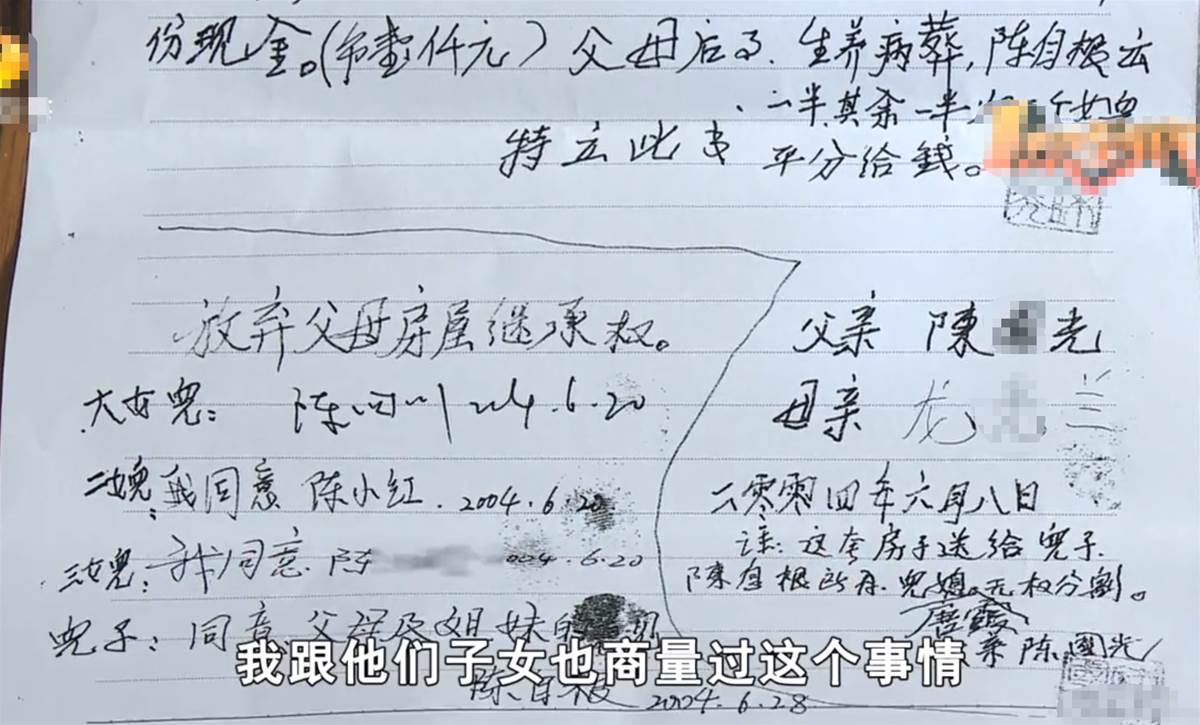 份现金。(币壹仟元) 父母后事、生养病葬,陈自根云
一半其余一半
特立此书 平分给錢。
放弃父母房屋继承权。
父亲 陳 光
母亲 龙 兰
大女兒: 陈 2004.6.20
二女兒:我同意 陈小红.2004.6.20
三女兒:我同意.陈 004.6.20
二零零四年六月八日
注:这套房子送给兒子.
陳自根所有.兒媳无权分割。
唐霞
陈國光
兒子:同意父母及姐妹的
陈自根 2004.6.28
我跟他们子女也商量过这个事情